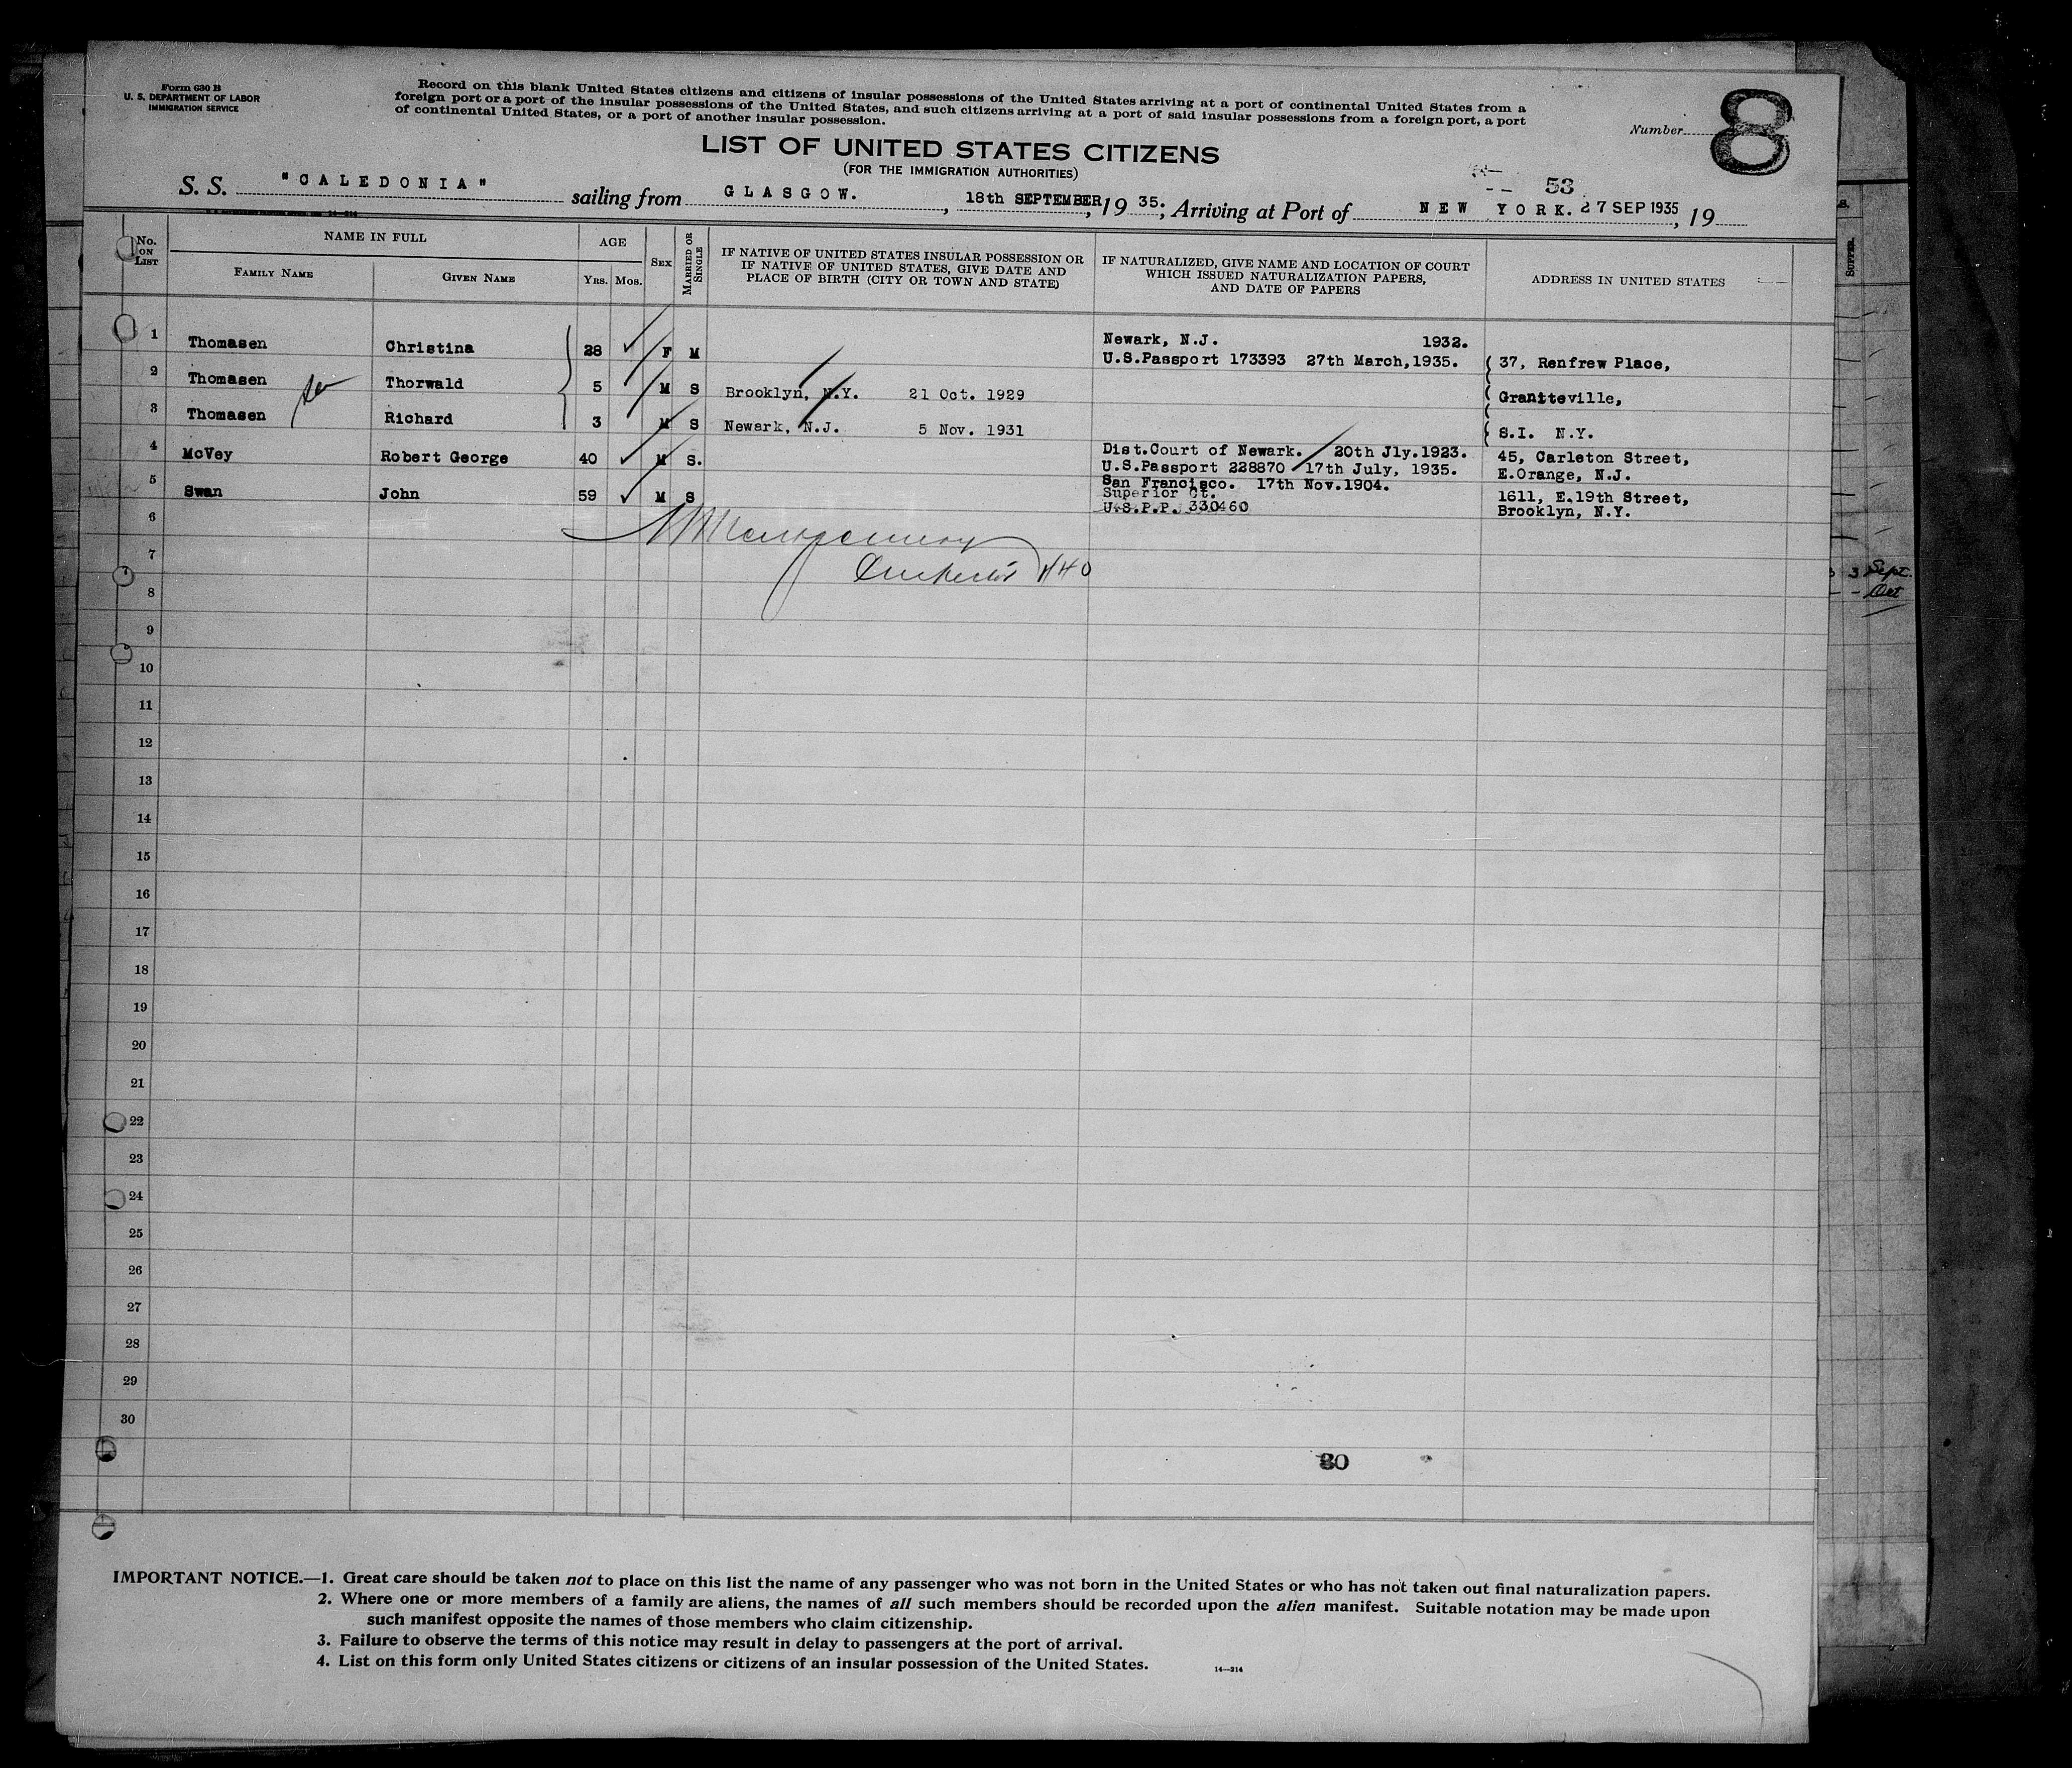 Form 630 B
U. S. DEPARTMENT OF LABOR
IMMIGRATION SERVICE
Record on this blank United States citizens and citizens of insular possessions of the United States arriving at a port of continental United States from a
foreign port or a port of the insular possessions of the United States, and such citizens arriving at a port of said insular possessions from a foreign port, a port
of continental United States, or a port of another insular possession.
Number 8
LIST OF UNITED STATES CITIZENS
(FOR THE IMMIGRATION AUTHORITIES)
53
S. S. "CALEDONIA" sailing from GLASGOW. , 18th SEPTEMBER, 19 35; Arriving at Port of NEW YORK. 27 SEP 1935, 19
14-214
No. ON LIST
NAME IN FULL
FAMILY NAME
GIVEN NAME
AGE
YRS. MOS.
SEX
MARRIED OR SINGLE
IF NATIVE OF UNITED STATES INSULAR POSSESSION OR
IF NATIVE OF UNITED STATES, GIVE DATE AND
PLACE OF BIRTH (CITY OR TOWN AND STATE)
IF NATURALIZED, GIVE NAME AND LOCATION OF COURT
WHICH ISSUED NATURALIZATION PAPERS,
AND DATE OF PAPERS
ADDRESS IN UNITED STATES
1 Thomasen Christina 28 F M Newark, N.J. 1932.
U.S.Passport 173393 27th March,1935. 37, Renfrew Place,
2 Thomasen Thorwald 5 M S Brooklyn, N.Y. 21 Oct. 1929 Graniteville,
3 Thomasen Richard 3 M S Newark, N.J. 5 Nov. 1931 S.I. N.Y.
4 McVey Robert George 40 M S. Dist.Court of Newark. 20th Jly.1923. 45, Carleton Street,
U.S.Passport 228870 17th July, 1935. E.Orange, N.J.
5 Swan John 59 M S San Francisco. 17th Nov.1904. 1611, E.19th Street,
Superior Ct. Brooklyn, N.Y.
U.S.P.P. 330460
6
7
8
9
10
11
12
13
14
15
16
17
18
19
20
21
22
23
24
25
26
27
28
29
30
30
SUPPER.
3 Sept.
Oct
IMPORTANT NOTICE.—1. Great care should be taken not to place on this list the name of any passenger who was not born in the United States or who has not taken out final naturalization papers.
2. Where one or more members of a family are aliens, the names of all such members should be recorded upon the alien manifest. Suitable notation may be made upon
such manifest opposite the names of those members who claim citizenship.
3. Failure to observe the terms of this notice may result in delay to passengers at the port of arrival.
4. List on this form only United States citizens or citizens of an insular possession of the United States.
14—214